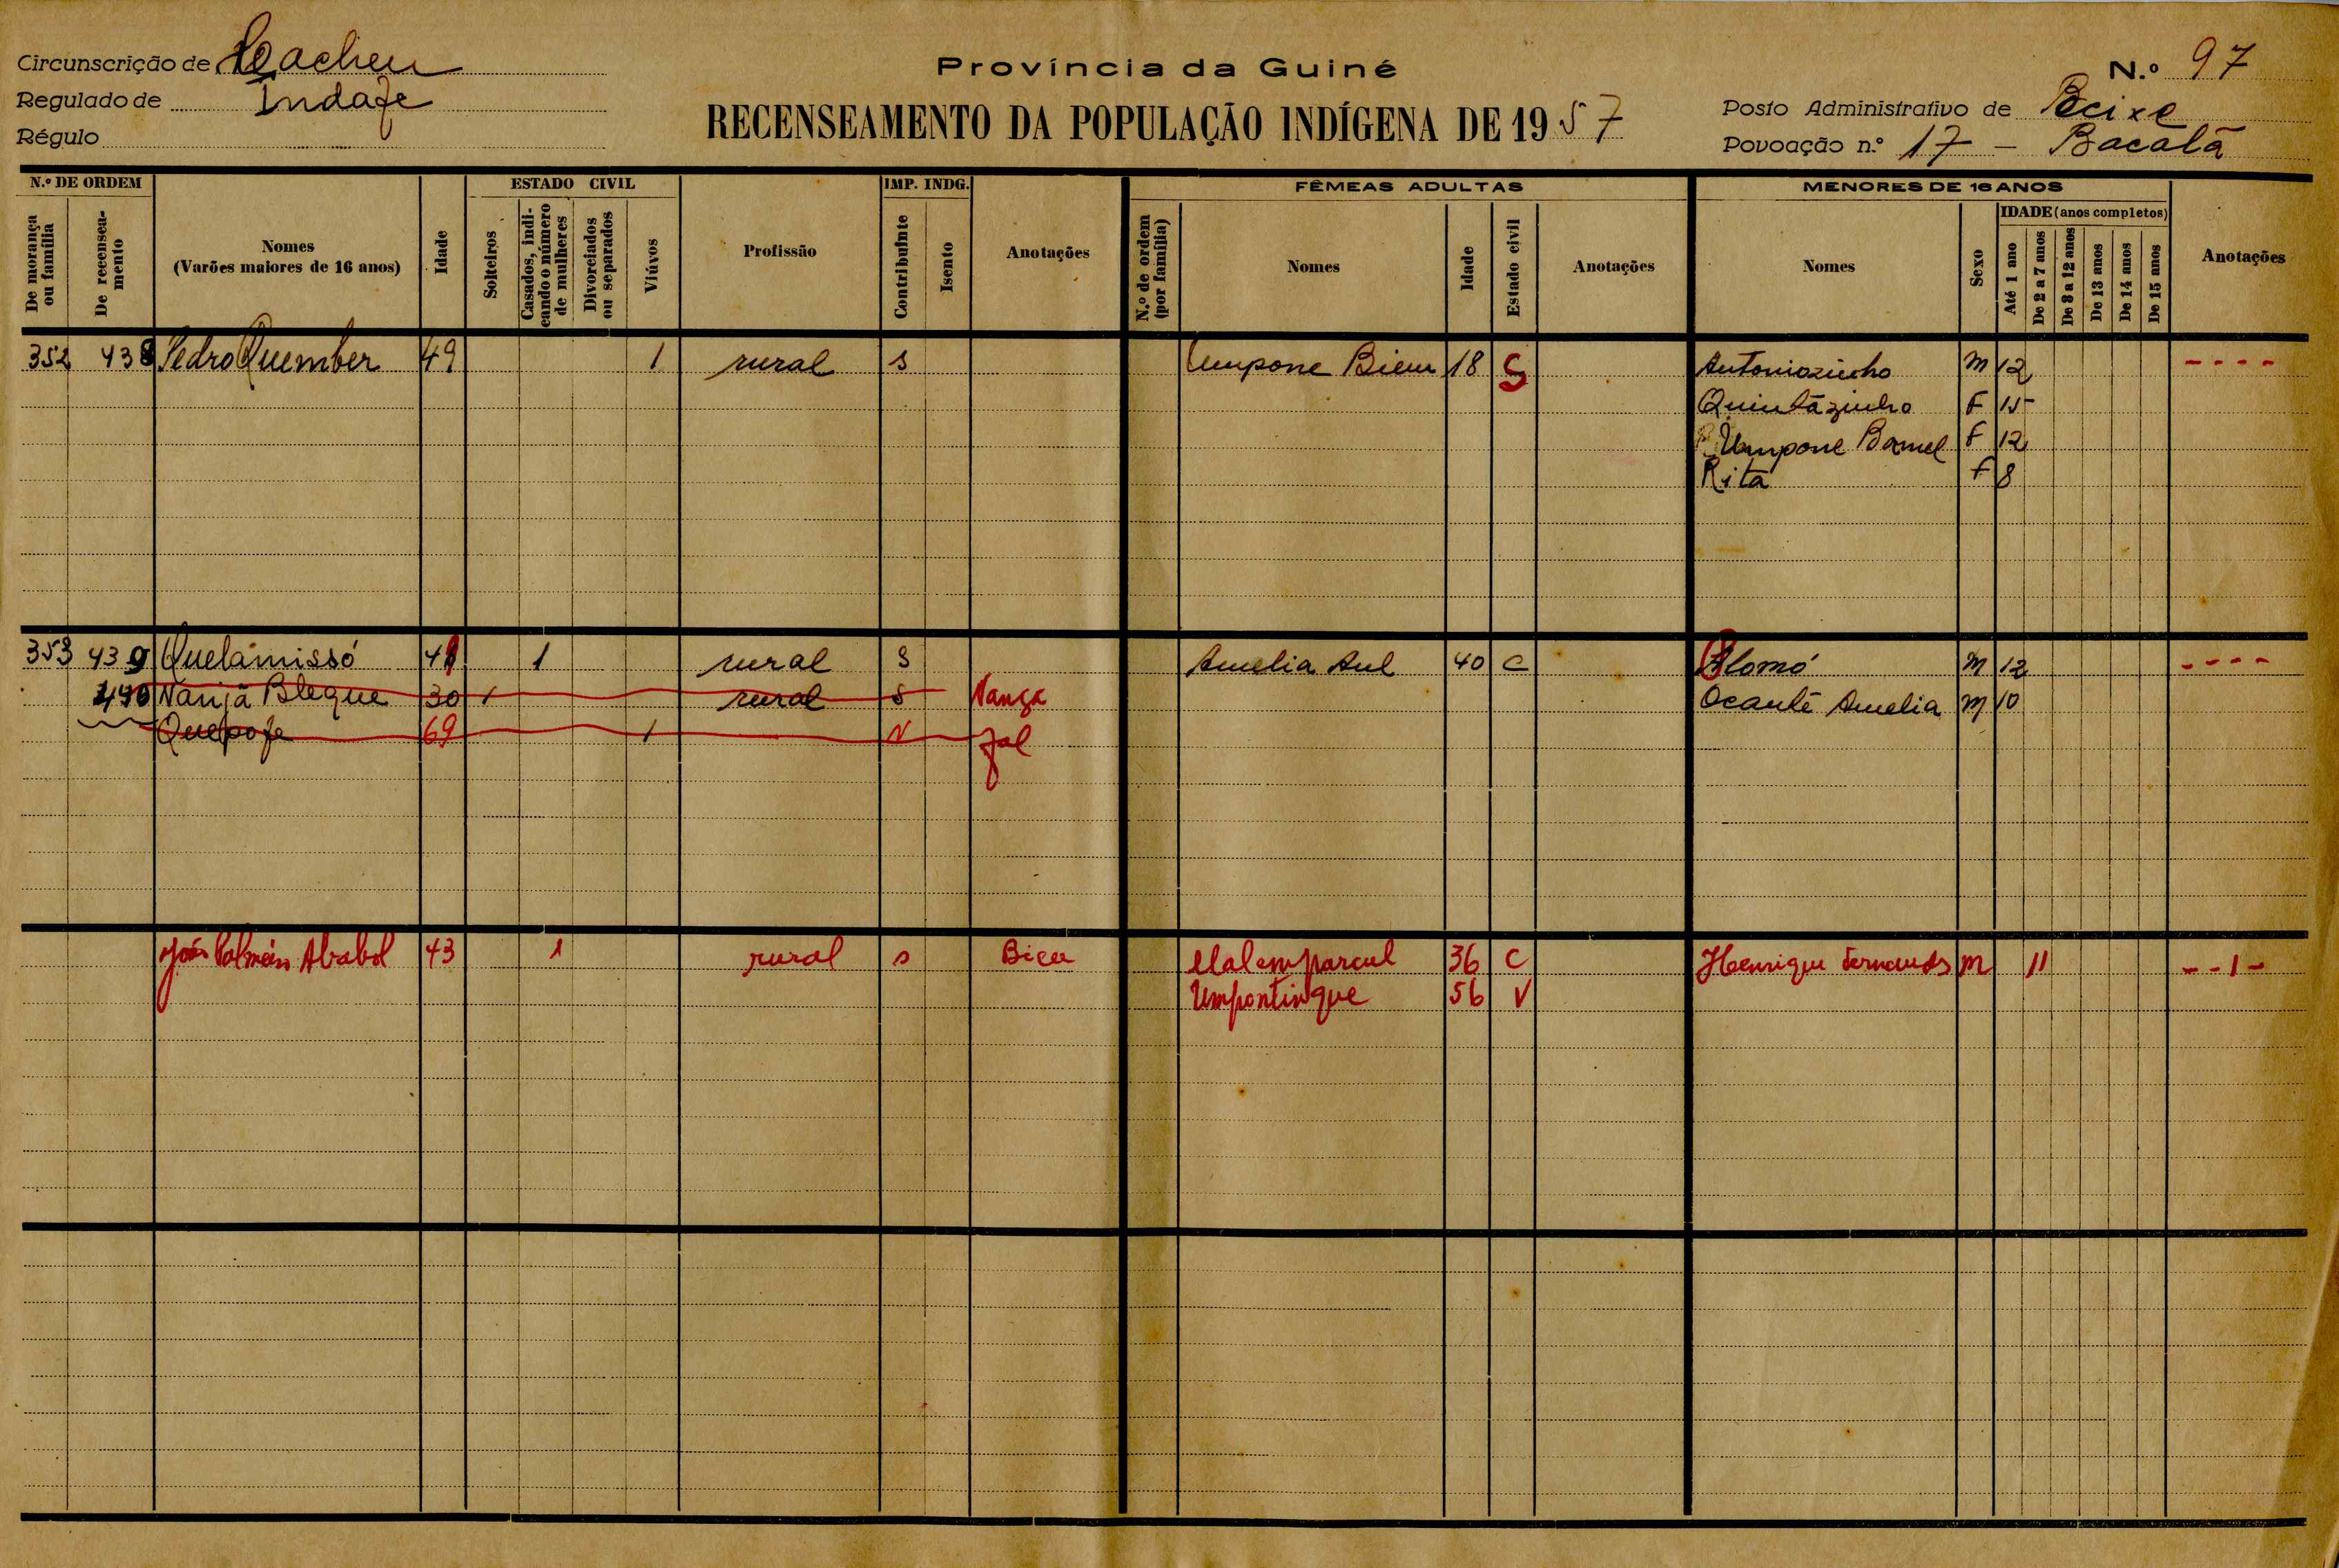 Circunscrição de Cacheu
Regulado de Indafe
Régulo
Província da Guiné
RECENSEAMENTO DA POPULAÇÃO INDÍGENA DE 1957
N.º 97
Posto Administrativo de Pecixe
Povoação n.º 17 - Bacalã
N.º DE ORDEM
De morança ou família
De recenseamento
Nomes
(Varões maiores de 16 anos)
Idade
ESTADO CIVIL
Solteiros
Casados, indicando o número de mulheres
Divorciados ou separados
Viúvos
Profissão
IMP. INDG.
Contribuinte
Isento
Anotações
FÊMEAS ADULTAS
N.º de ordem (por família)
Nomes
Idade
Estado civil
Anotações
MENORES DE 16 ANOS
Nomes
Sexo
IDADE (anos completos)
Até 1 ano
De 2 a 7 anos
De 8 a 12 anos
De 13 anos
De 14 anos
De 15 anos
Anotações
352 438 Pedro Quember 49 1 rural s Umpone Bieu 18 S Antoniozinho M 12 - - - -
Quintãzinho F 15
Umpone Bamel F 12
Rita F 8
353 439 Quelamissó 1 rural S Amelia Aul 40 C Alomó M 12 - - - -
440 Nanjã Bleque 30 1 rural S Ocantê Amelia M 10
Quepofe 69 1 N fal
João Ababol 43 1 rural s 36 C Henrique Fernands M 11 - - 1 -
Umpontinque 56 V